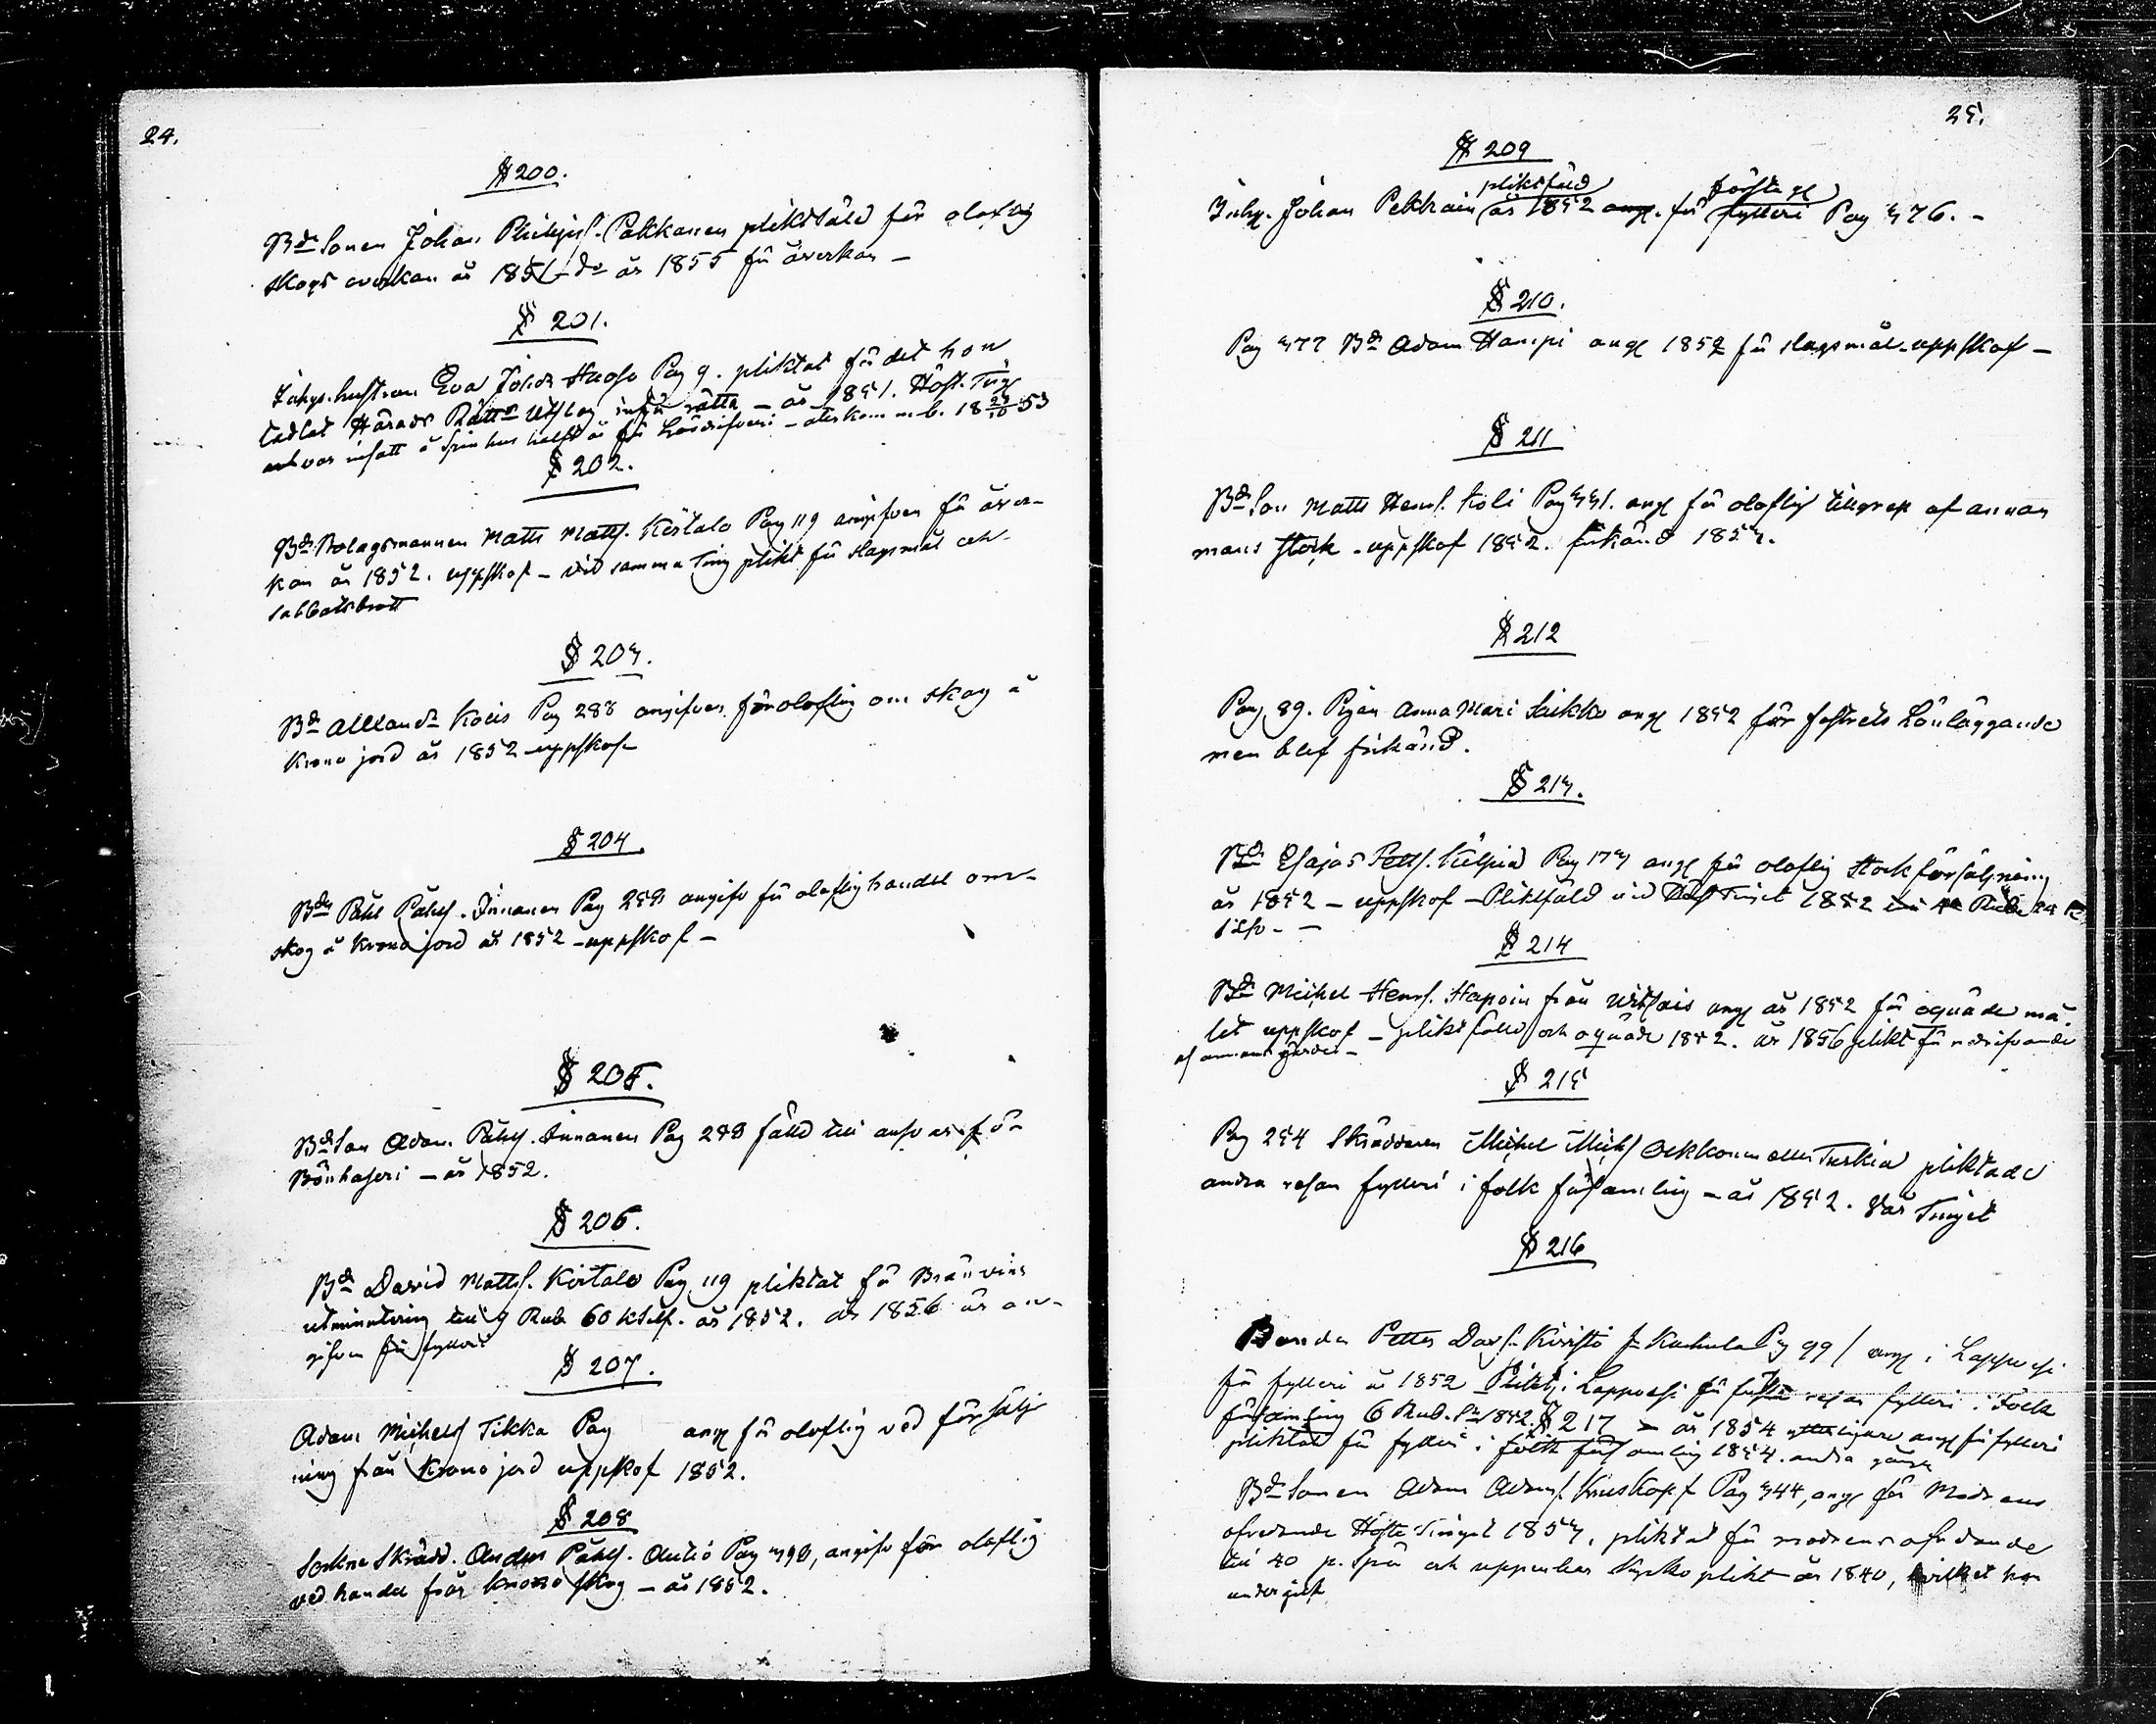 24.
§ 200.
Bde Sonen Johan Philipss. Pakkanen pliktfäld för oloflig
skogs averkan år 1851 – do år 1855 för åverkan –
§ 201.
Inhys. hustrun Eva Johdr Huoso Pag 9. pliktat för det hon
tadlat Härads Rättns Utslag inför rätta – år 1851. Höst. Tingt
var insatt å Spinhus halft år för Lösdrifveri – återkom m. b. 18 24/10 53
§ 202.
Bde Bolagsmannen Matts Matts. Kostalo Pag 119 angifven för åver-
kan år 1852. uppskof – vid samma Ting plikt för slagsmål och
sabbatsbrott
§ 203.
Bde Allexandr Kocis Pag 288 angifven för oloflig om skog å
Krono jord år 1852 – uppskof –
§ 204.
Bdn Påhl Påhls. Innanen Pag 253 angifv för oloflig handel om
skog å Krono jord år 1852 – uppskof –
§ 205.
Bde Son Adam Påhls. Innanen Pag 253 fälld till ansvar för
Bönhaseri – år 1852.
§ 206.
Bde David Matts. Kostalo Pag 119 pliktat för Bränvins
utminutering till 9 Rub 60 k Silf. år 1852. år 1856 är an-
gifven för fylleri
§ 207.
Adam Michels Tikka Pag ang för oloflig ved försälj
ning från Krono jord uppskof 1852.
§ 208
Sockne Skrädd. Anders Påhls. Autio Pag 398, angifv för oloflig
ved handel från krono skog – år 1852.
25.
§ 209
pliktfäld första g
Inhy. Johan Pekkain år 1852 ang. för fylleri Pag 376. –
§ 210.
Pag 377 Bde Adam Hampi ang 1852 för slagsmål – uppskof –
§ 211
Bde Son Matts Henrs. Koli Pag 331. ang för oloflig tillgrep af annan
mans stock – uppskof 1852. frikänd 1853.
§ 212
Pag 89. Pigan Anna Mari Saikko ang 1852 för fostrets Lönläggande
men blef frikänd.
§ 213.
Bde Esajas Petts. Kilpiä Pag 173 ang för oloflig stockförsäljning
år 1852 – uppskof – Pliktfäld vid Tinget 1852 Rub 24 k
silfv. –
§ 214
Bde Michel Henrs. Hapoin från ang år 1852 för oqväde må.
let uppskof – pliktfälld och oqväde 1852. år 1856 plikt för
af annans gärde –
§ 215
Pag 254 Skräddaren Michel Michs Oekkonen eller Turkia pliktade
andra resan fylleri i folk församling – år 1852. Vår Tinget
§ 216
Bonden Petter Davs. Kiristi fr. Kackula Pg 99 / ang i Lappvesi
för fylleri år 1852 Plikt. i Lappvesi för första resan fylleri i Folk
församling 6 Rub. Sr 1852. § 217 > år 1854 ytterligare ang för fylleri
pliktat för fylleri i folk församling 1854. andra gången
Bde Sonen Adam Adams. Kruskopf Pag 344, ang för Modrens
ofredande Höste Tinget 1853, pliktat för modrens ofredande
till 40 p. Spö och uppenbar Kyrko plikt år 1840, hvilket han
undergick